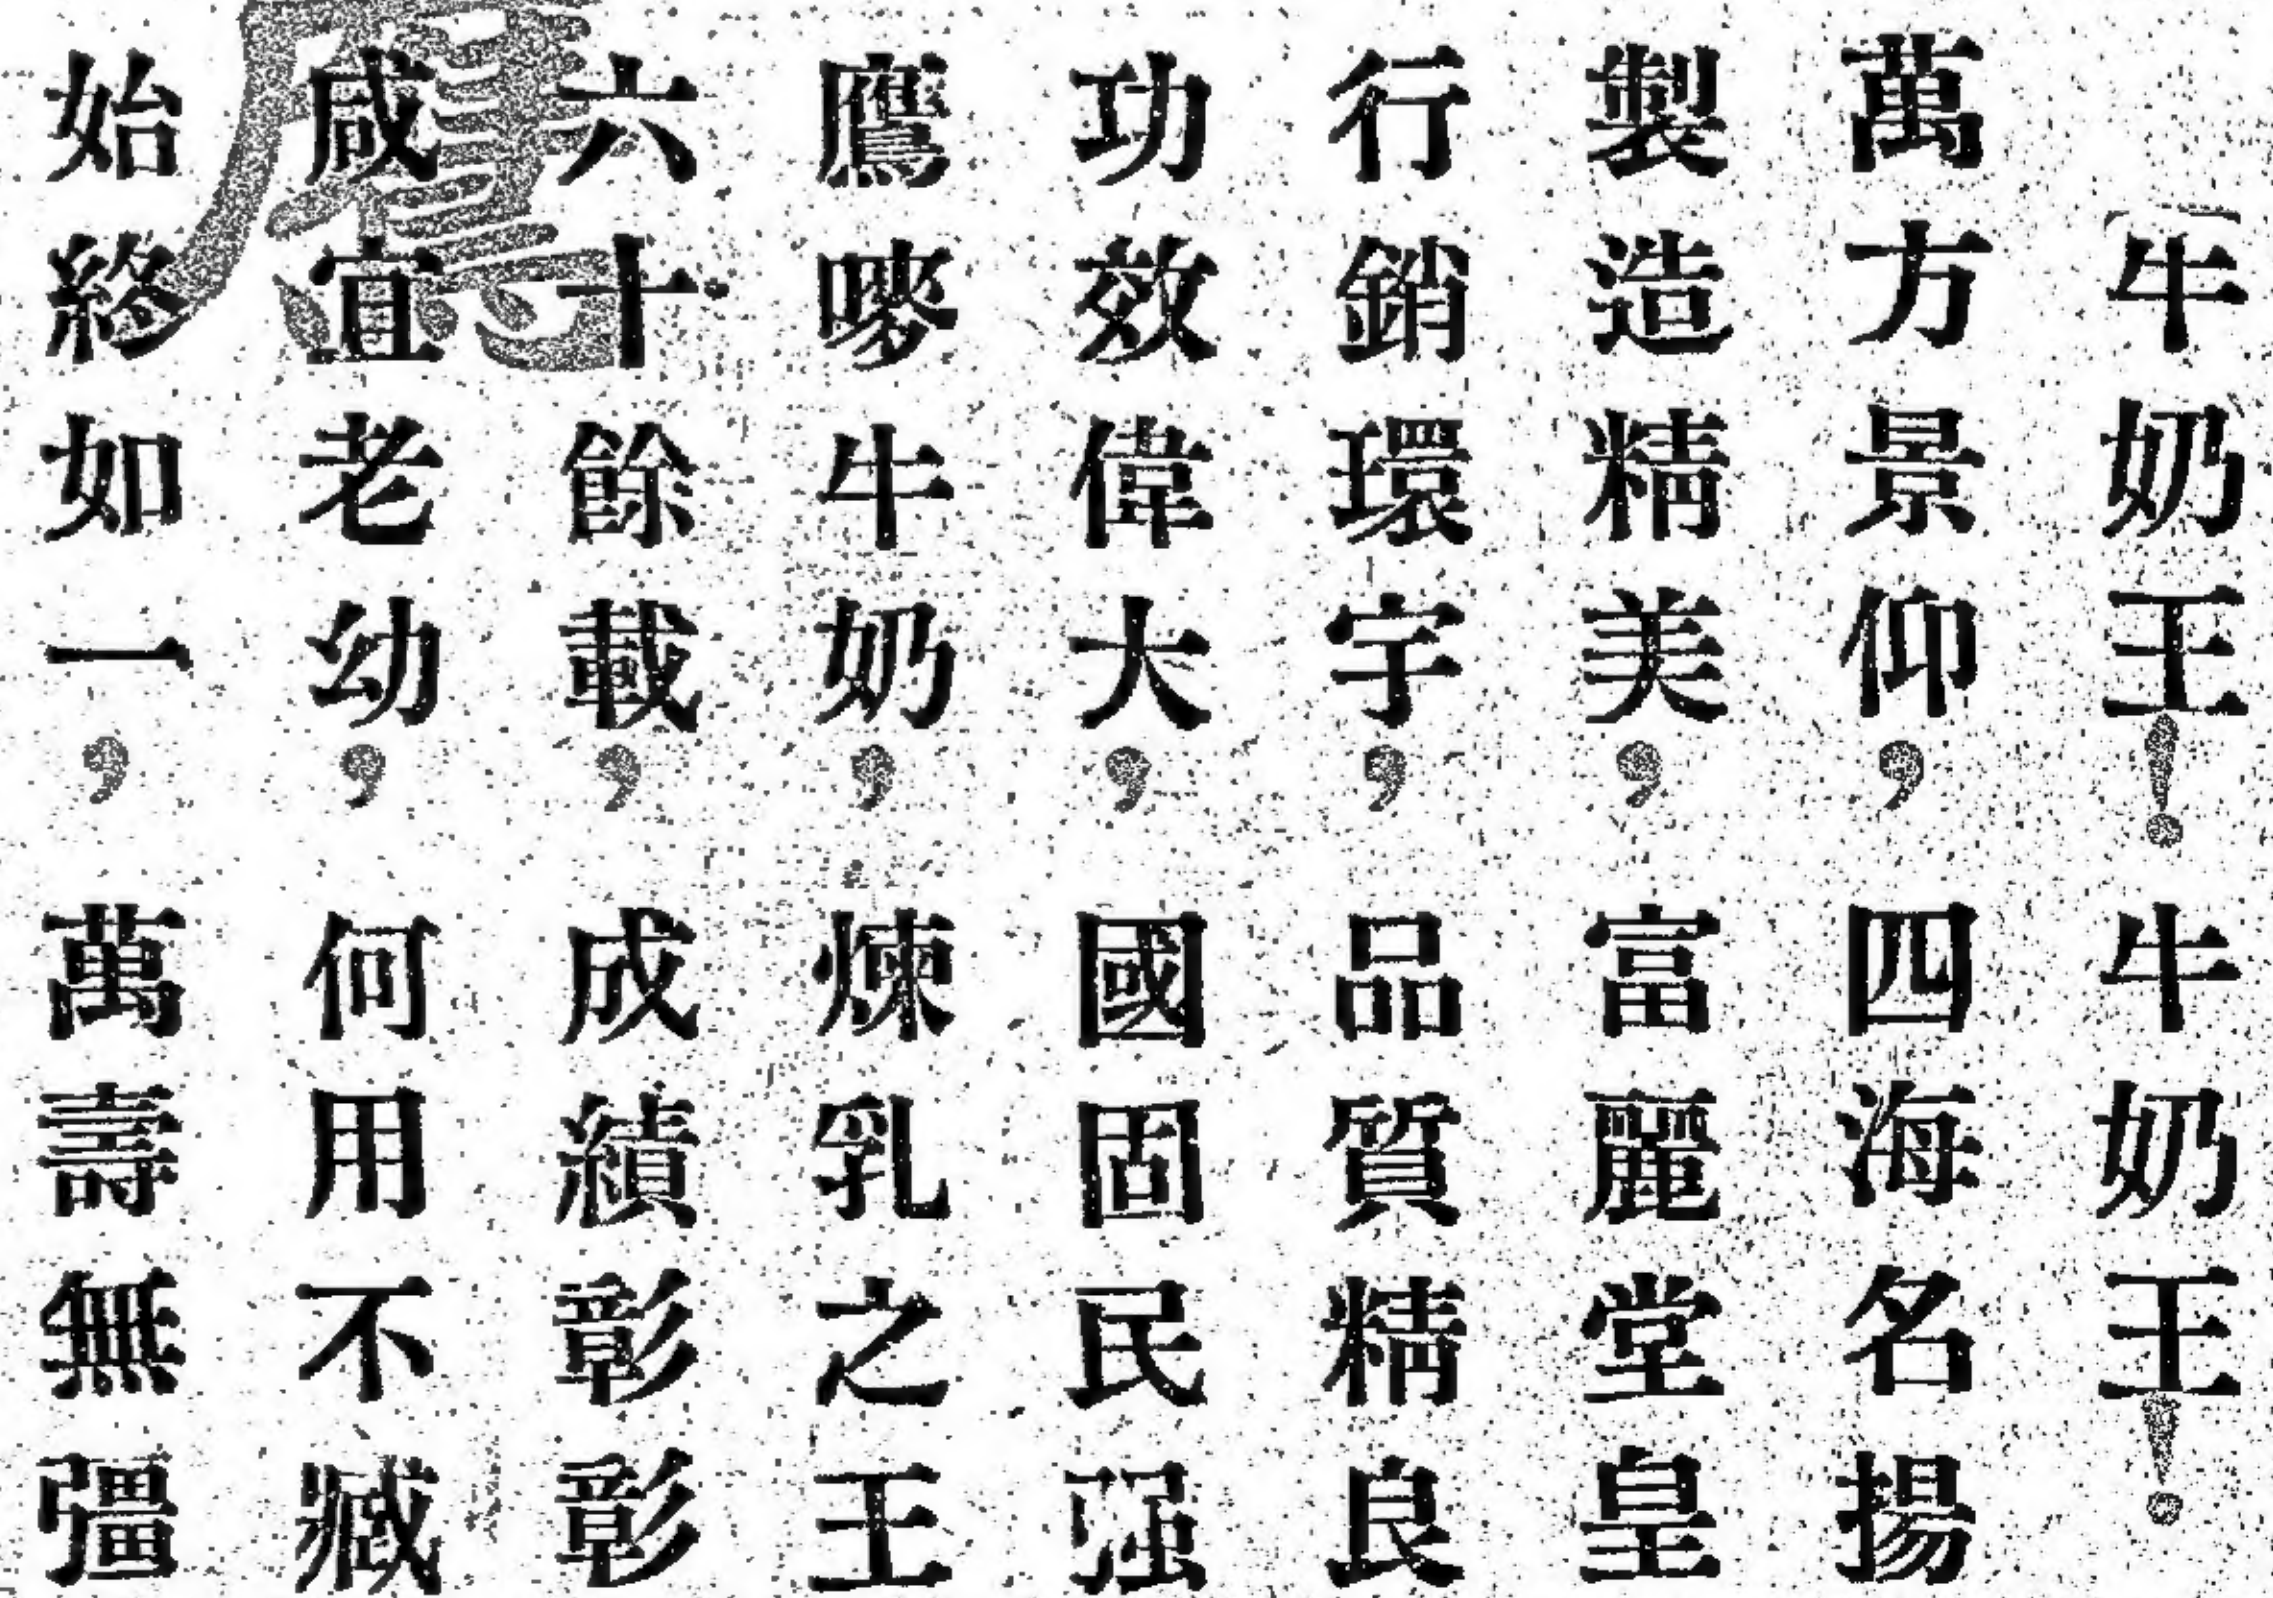 牛奶王!牛奶王!
萬方景仰,四海名揚
製造精美,富麗堂皇
行銷環宇,品質精良
功效偉大,國固民强
鷹嘜牛奶,煉乳之王
六十餘載,成績彰彰
咸宜老幼,何用不臧
始終如一,萬壽無疆
鷹